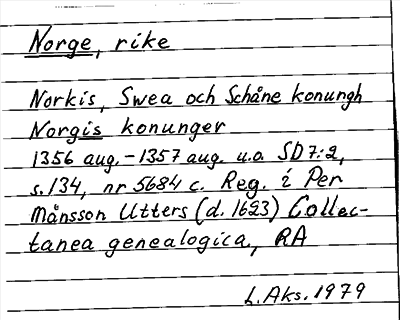 Norge, rike
Norkis, Swea och Schåne konungh
Norgis konunger
1356 aug. - 1357 aug. u.o. SD 7:2,
s. 134, nr 5684 c. Reg. i Per
Månsson Utters (d. 1623) Collec-
tanea genealogica, RA
L. Aks. 1979